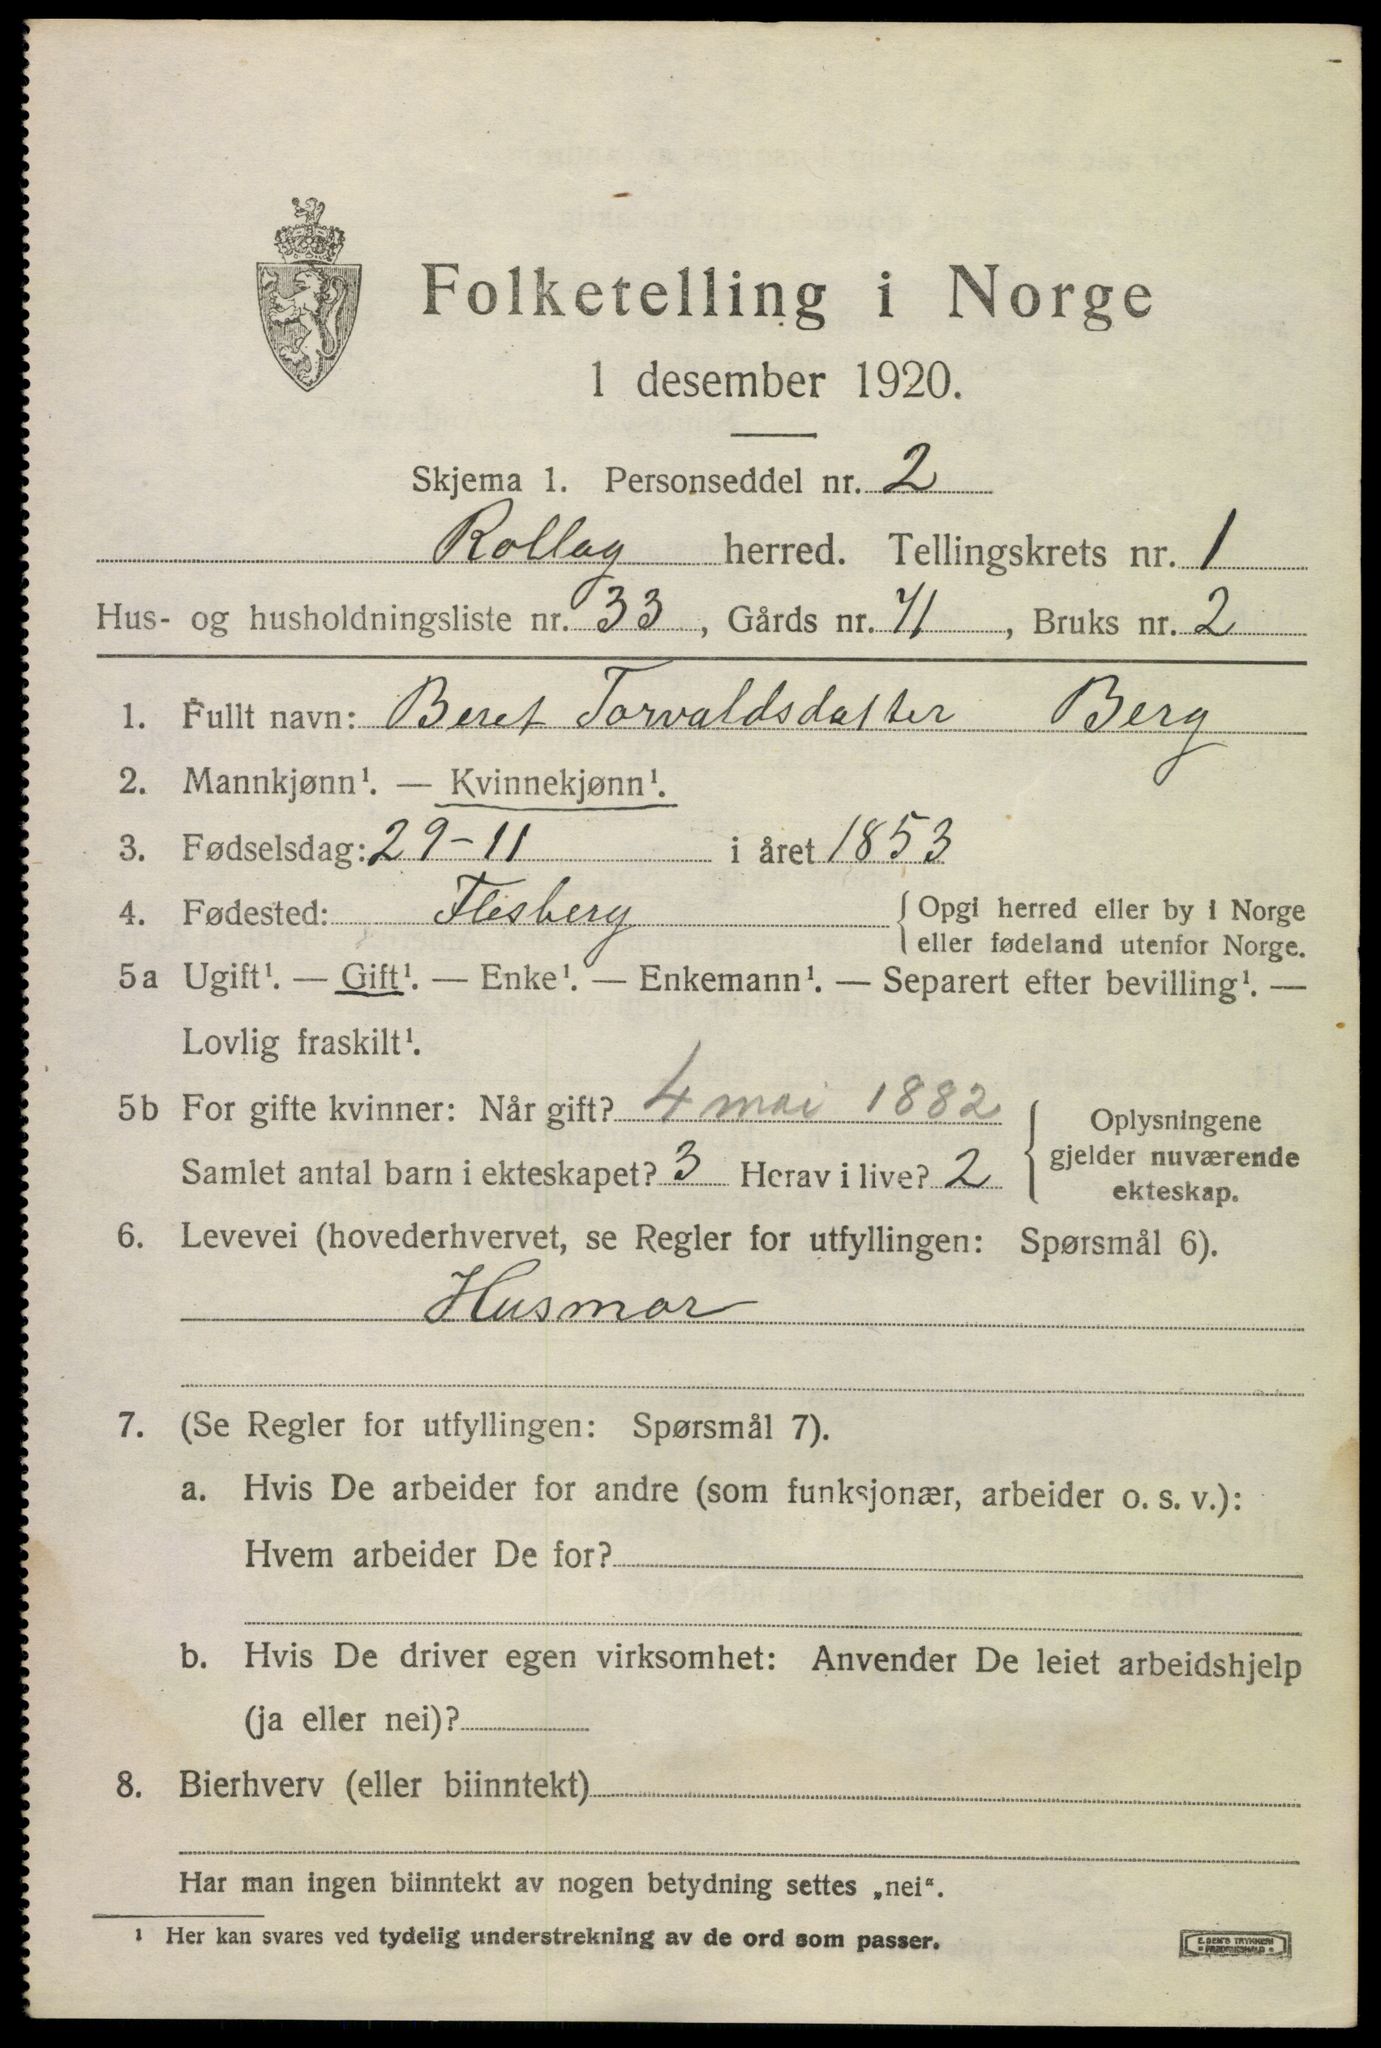 Folketelling i Norge
1 desember 1920.
Skjema 1. Personseddel nr. 2
Rollag herred. Tellingskrets nr. 1
Hus- og husholdningsliste nr. 33, Gårds nr. 71, Bruks nr. 2
1. Fullt navn: Beret Torvaldsdatter Berg
2. Mannkjønn¹. — Kvinnekjønn¹.
3. Fødselsdag: 29-11 i året 1853
4. Fødested: Flesberg { Opgi herred eller by i Norge
eller fødeland utenfor Norge.
5a Ugift¹. — Gift¹. — Enke¹. — Enkemann¹. — Separert efter bevilling¹. —
Lovlig fraskilt¹.
5b For gifte kvinner: Når gift? 4 mai 1882
Samlet antal barn i ekteskapet? 3 Herav i live? 2
{ Oplysningene
gjelder nuværende
ekteskap.
6. Levevei (hovederhvervet, se Regler for utfyllingen: Spørsmål 6).
Husmor
7. (Se Regler for utfyllingen: Spørsmål 7).
a. Hvis De arbeider for andre (som funksjonær, arbeider o. s. v.):
Hvem arbeider De for?
b. Hvis De driver egen virksomhet: Anvender De leiet arbeidshjelp
(ja eller nei)?
8. Bierhverv (eller biinntekt)
Har man ingen biinntekt av nogen betydning settes „nei“.
¹ Her kan svares ved tydelig understrekning av de ord som passer.
E. SEM'S TRYKKERI
FREDRIKSHALD